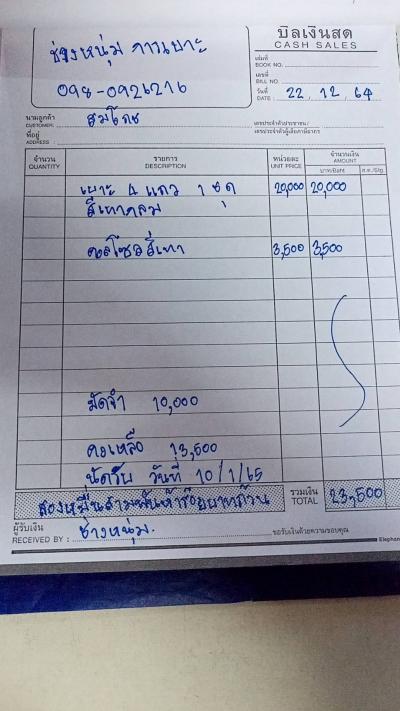 ช่างหนุ่ม คาร์เบาะ
098-0926216
บิลเงินสด
CASH SALES
เล่มที่
BOOK NO.
เลขที่
BILL NO.
วันที่
DATE 22, 12, 64
นามลูกค้า
CUSTOMER: สมโภช
ที่อยู่
ADDRESS
เลขประจำตัวประชาชน/
เลขประจำตัวผู้เสียภาษีอากร
จำนวน
QUANTITY
รายการ
DESCRIPTION
หน่วยละ
UNIT PRICE
จำนวนเงิน
AMOUNT
บาท/Baht
ส.ต./Stg.
เบาะ 4 แถว 1 ชุด 20,000 20,000
สีเทา
คอลโซลสีเทา 3,500 3,500
มัดจำ 10,000
คงเหลือ 13,500
นัดรับ วันที่ 10/1/65
สองหมื่นสามพันห้าร้อยบาทถ้วน
รวมเงิน
TOTAL 23,500
ผู้รับเงิน
RECEIVED BY : ช่างหนุ่ม.
ขอรับเงินด้วยความขอบคุณ
Elephan